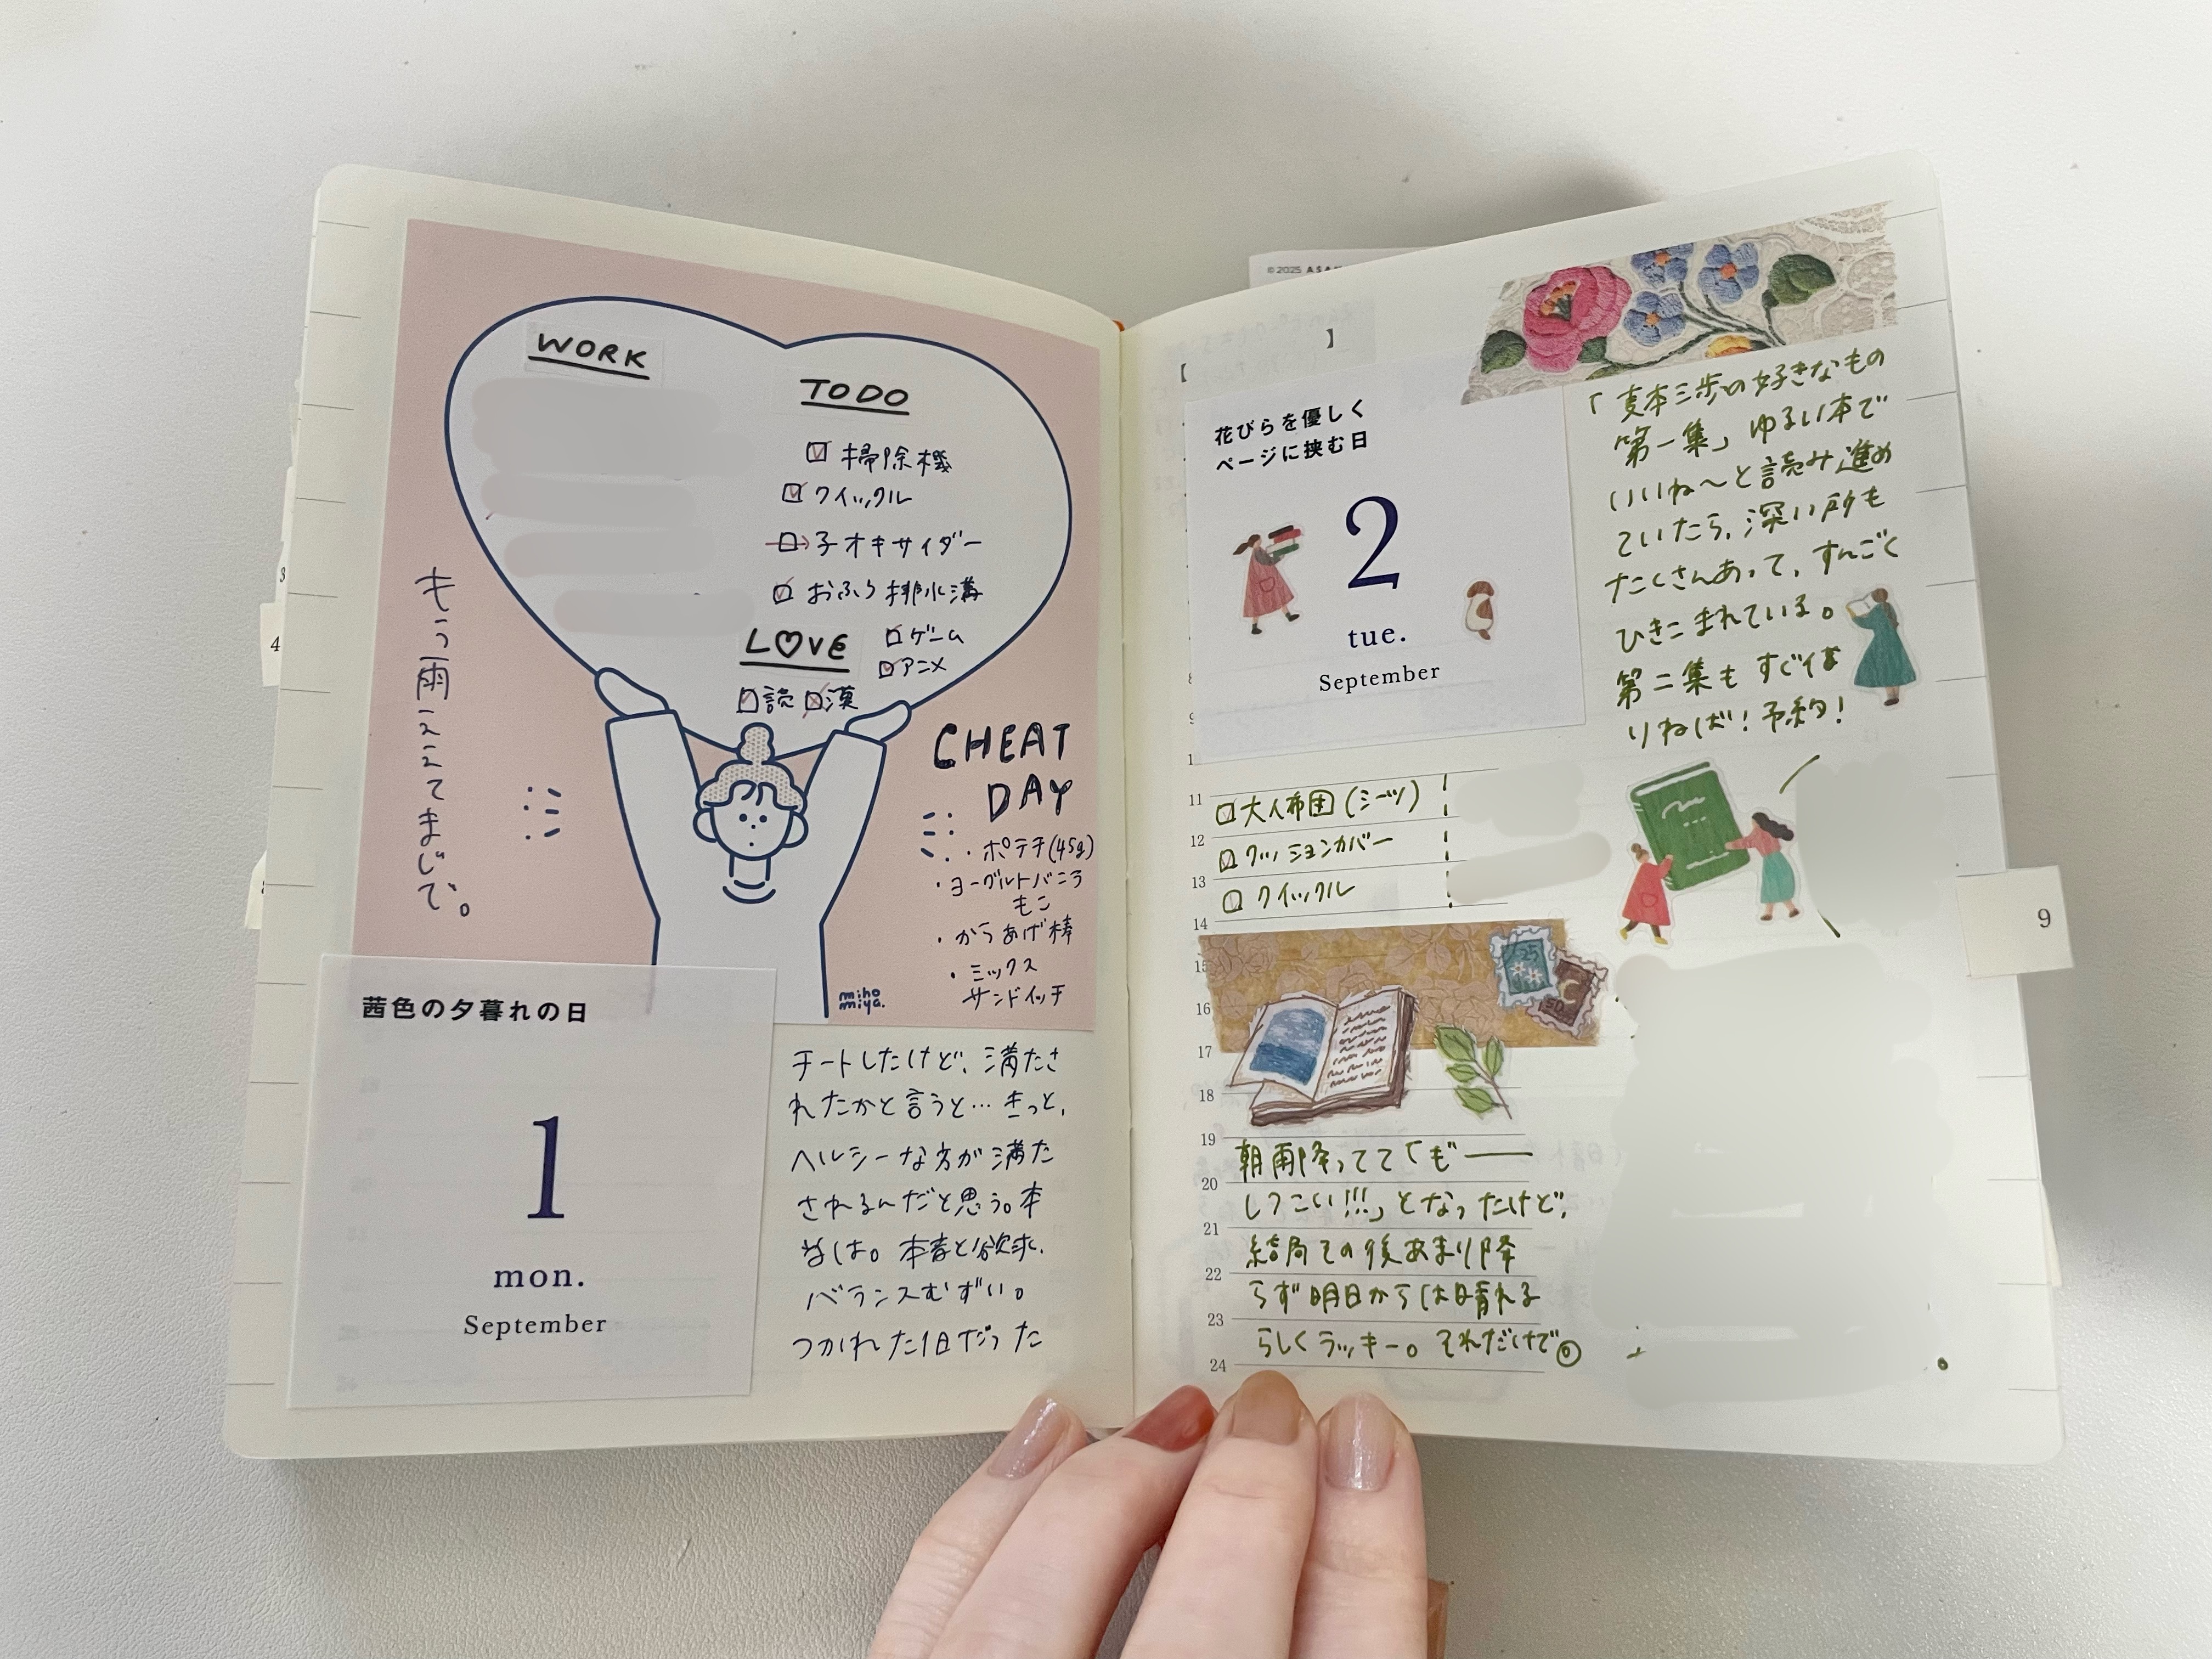 WORK
TODO
掃除機
クイックル
子オキサイダー
おふろ排水溝
LOVE
ゲーム
アニメ
読 漢
もう雨ええてまじで。
CHEAT
DAY
・ポテチ(45g)
・ヨーグルトバニラ
もこ
・からあげ棒
・ミックス
サンドイッチ
miho
miya.
茜色の夕暮れの日
1
mon.
September
チートしたけど、満たさ
れたかと言うと…きっと、
ヘルシーな方が満た
されるんだと思う。本
当は。本音と欲求、
バランスむずい。
つかれた1日だった
3
4
©2025 ASA
【 】
花びらを優しく
ページに挟む日
2
tue.
September
「麦本三歩の好きなもの
第一集」ゆるい本で
いいね〜と読み進め
ていたら、深い所も
たくさんあって、すんごく
ひきこまれている。
第二集もすぐ借
りねば!予約!
8
9
11
大人布団(シーツ)
12
クッションカバー
13
クイックル
14
15
25
50
16
17
18
19
朝雨降ってて「も゛ー
20
しつこい!!!」となったけど、
21
結局その後あまり降
22
らず明日からは晴れる
23
らしくラッキー。それだけで◎
24
9